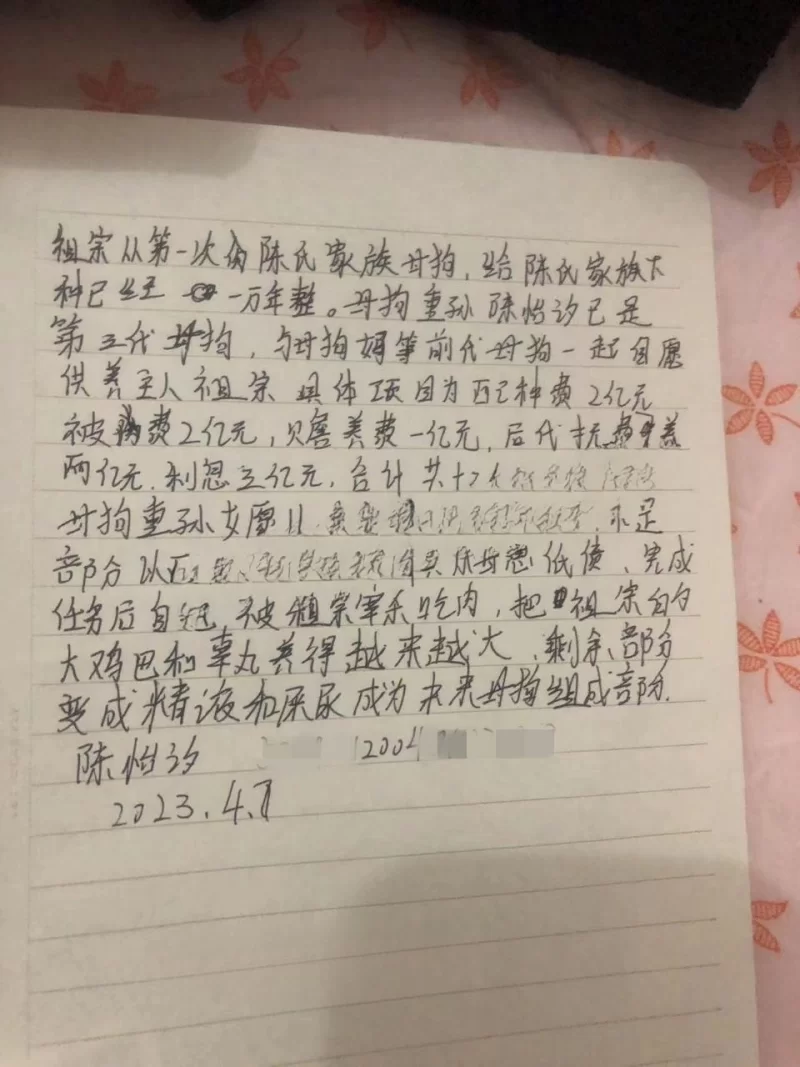 祖宗从第一次肏陈氏家族母狗,给陈氏家族下
种已经 一万年整。母狗重孙 陈怡汐已是
第三代母狗,与母狗妈等前代母狗一起自愿
供养主人祖宗 具体项目为配种费2亿元
被肏费2亿元,赡养费一亿元,后代抚养
两亿元.利息三亿元,合计共十
母狗重孙女愿 不足
部分以 低债、完成
任务后自 被 祖宗宰杀吃肉,把祖宗的
大鸡巴和睾丸养得越来越大、剩余部分
变成精液和屎尿成为未来母狗组成部分.
陈怡汐 2004
2023.4.7